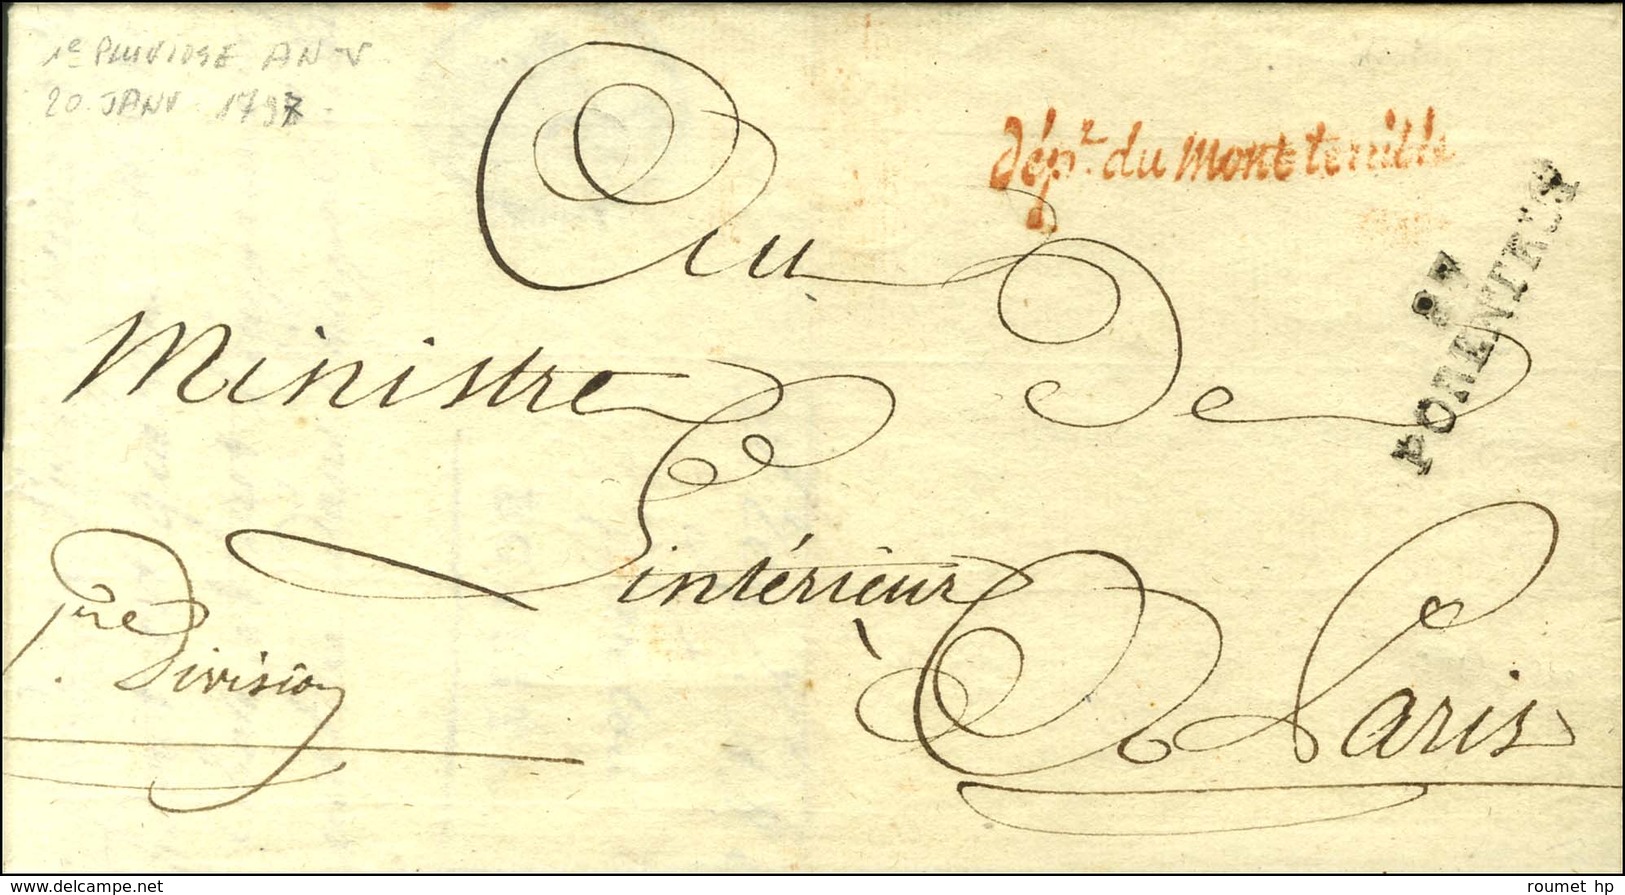 1e PLUVIOSE AN V
20 JANV 1797
dépt. du mont terrible
87
PORENTRUY
Au
Ministre De
L'intérieur
à Paris
1ere Division
www.delcampe.net
roumet hp